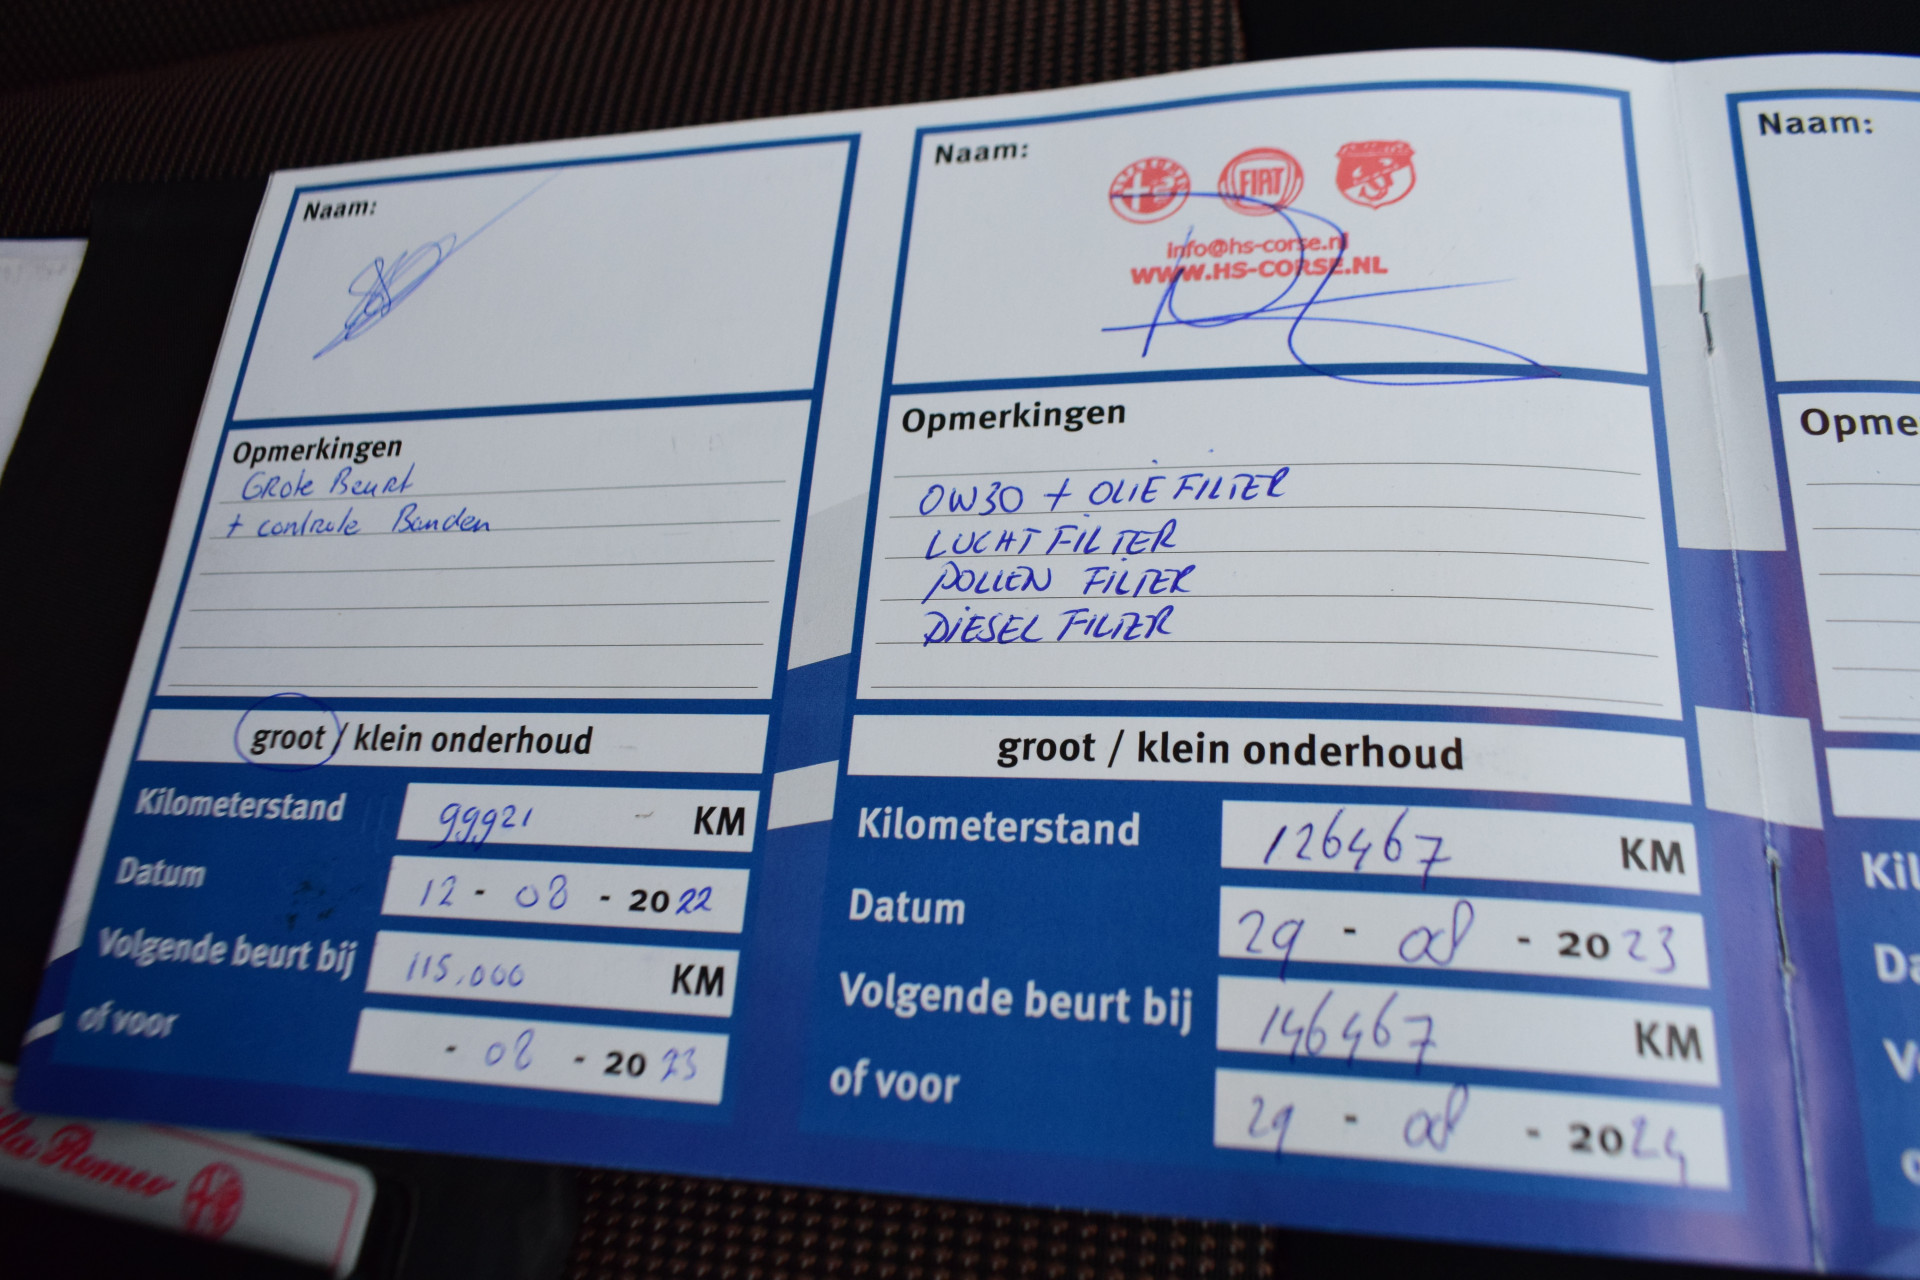 Naam:
Opmerkingen
Grote Beurt
+ controle Banden
groot / klein onderhoud
Kilometerstand 99921 KM
Datum 12 - 08 - 2022
Volgende beurt bij 115.000 KM
of voor - 08 - 2023
Naam:
FIAT
info@hs-corse.nl
WWW.HS-CORSE.NL
Opmerkingen
0W30 + OLIE FILTER
LUCHT FILTER
POLLEN FILTER
DIESEL FILTER
groot / klein onderhoud
Kilometerstand 126467 KM
Datum 29 - 08 - 2023
Volgende beurt bij 146467 KM
of voor 29 - 08 - 2024
Naam:
Opme
Kil
Da
V
lfa Romeo